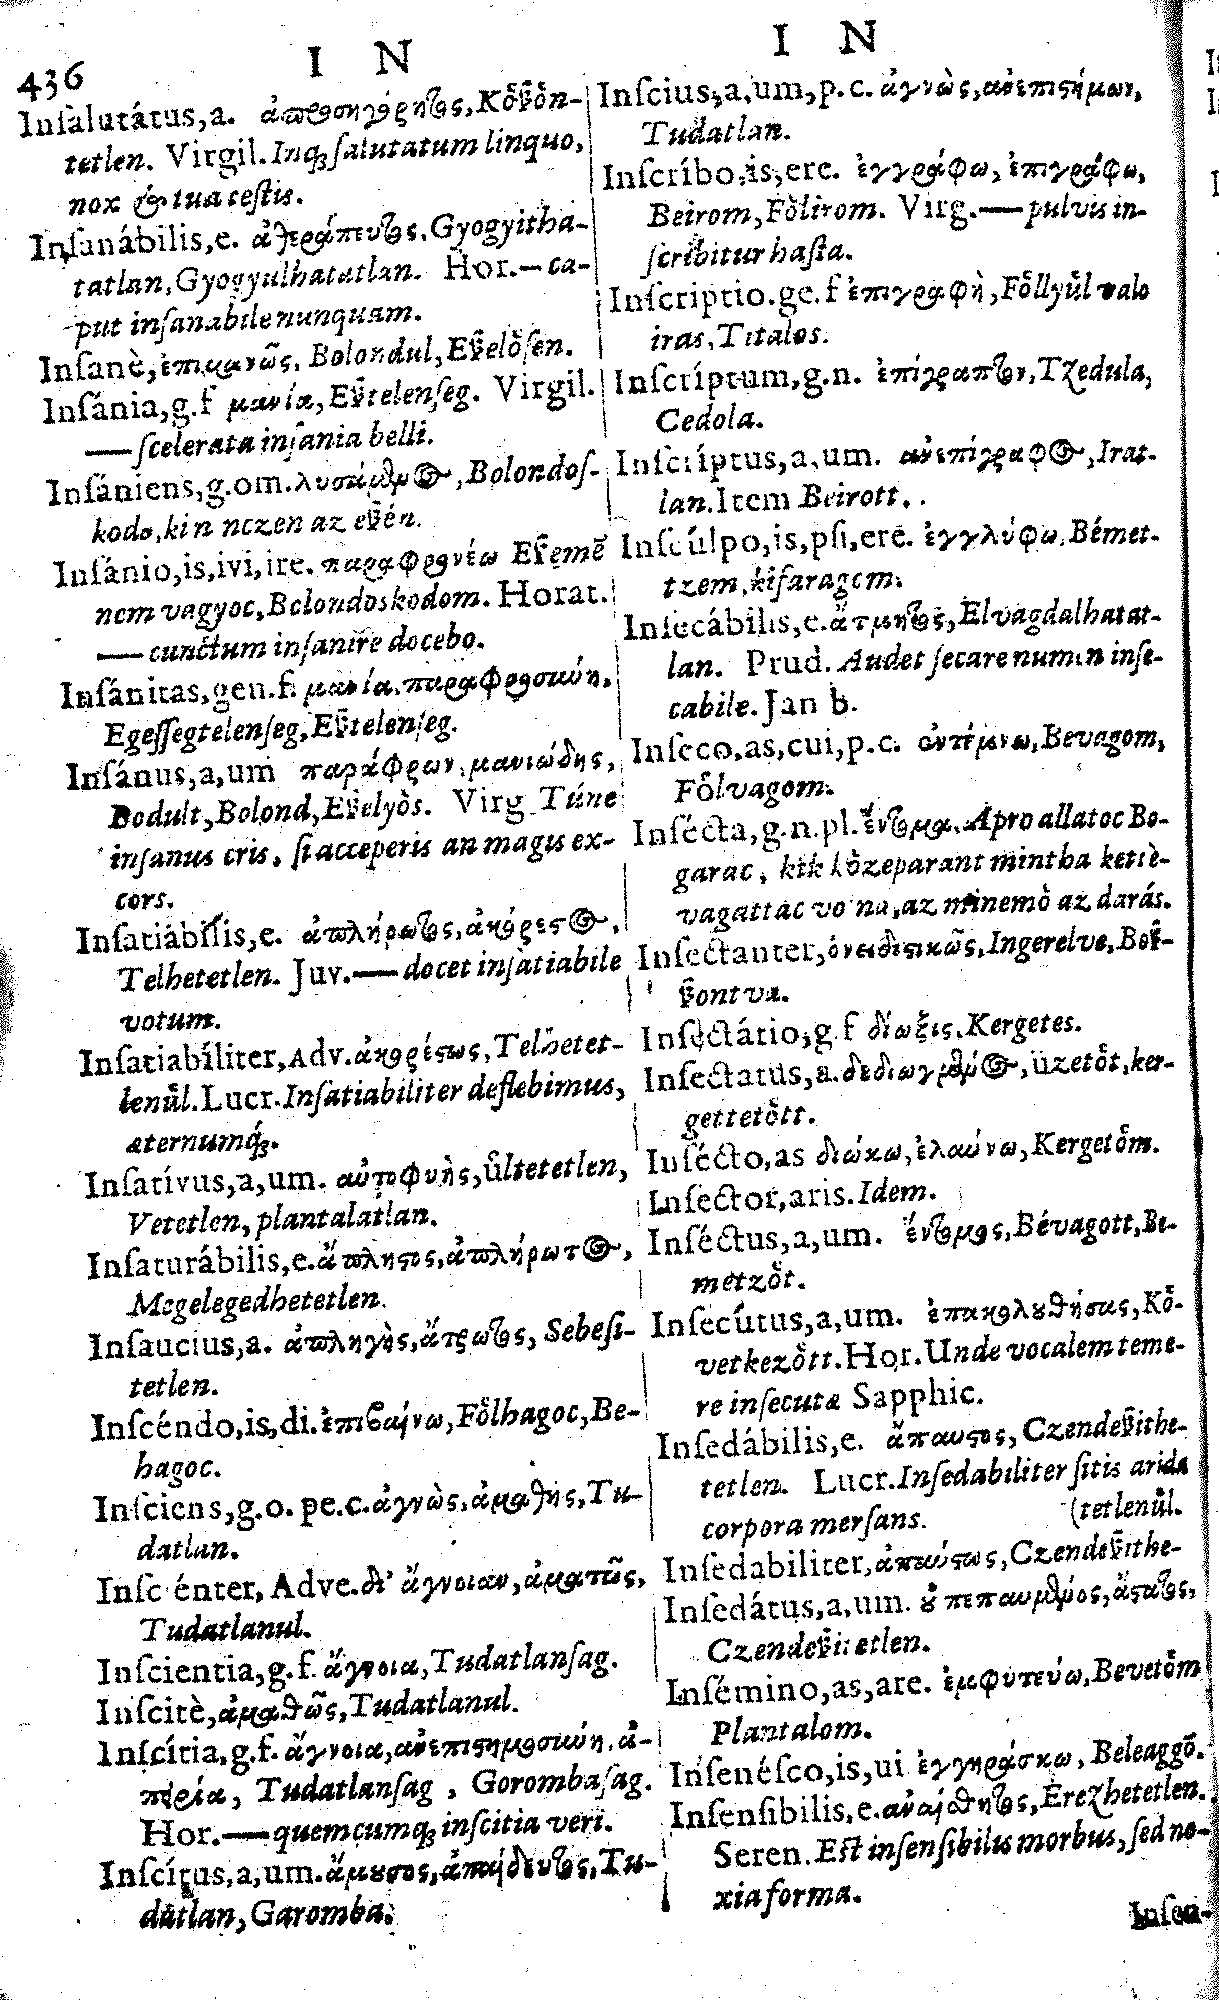 436
I N
Inſalutátus,a. ἀπροσηγόρητος, Kőv̈őn-
tetlen. Virgil. Inq; ſalutatum linquo,
nox & tua teſtis.
Inſanábilis,e. ἀθεράπευτος, Gyogyitha-
tatlan, Gyogyulhatatlan. Hor.— ca-
put inſanabile nunquam.
Inſanè, ἐπιμανῶς, Bolondul, Ev̈előſen.
Inſánia,g.f μανία, Ev̈telenſeg. Virgil.
— ſcelerata inſania belli.
Inſániens,g.om. Bolondoſ-
kodo, ki n nczen az ev̈én.
Inſánio,is,ivi,ire. παραφρονέω Ev̈emē
nem vagyoc, Bolondoskodom. Horat.
— cunctum inſanire docebo.
Inſánitas,gen.f. μανία, παραφροσύνη,
Egeſſegtelenſeg, Ev̈telenſeg.
Inſánus,a,um παράφρων, μανιώδης,
Dodult, Bolond, Ev̈elyős. Virg. Túne
inſanus eris, ſi acceperis an magis ex-
cors.
Inſatiábilis,e. ἀπλήρωτος, ἀκόρεστος,
Telhetetlen. Juv.— docet inſatiabile
votum.
Inſatiabíliter, Adv. ἀκορέστως, Telhetet-
lenűl. Lucr. Inſatiabiliter deflebimus,
æternumq́;.
Inſatívus,a,um. αὐτοφυὴς, űltetetlen,
Vetetlen, plantalatlan.
Inſaturábilis,e. ἄπληστος, ἀπλήρωτος,
Megelegedhetetlen.
Inſaucius,a. ἀπληγὴς, ἄτρωτος, Sebeſi-
tetlen.
Inſcéndo,is,di. ἐπιβαίνω, Főlhagoc, Be-
hagoc.
Inſciens,g.o. pe.c. ἀγνὼς, ἀμαθής, Tu-
datlan.
Inſc énter, Adve. δι' ἄγνοιαν, ἀμαθῶς,
Tudatlanul.
Inſcientia,g.f. ἄγνοια, Tudatlanſag.
Inſcitè, ἀμαθῶς, Tudatlanul.
Inſcítia,g.f. ἄγνοια, ἀνεπιστημοσύνη, ἀ-
πειρία, Tudatlanſag, Gorombaſag.
Hor.— quemcumq; inſcitia veri.
Inſcítus,a,um. ἄμουσος, ἀπαίδευτος, Tu-
datlan, Garomba.
I N
Inſcius,a,um, p.c. ἀγνὼς, ἀνεπιστήμων,
Tudatlan.
Inſcríbo,is,ere. ἐγγράφω, ἐπιγράφω,
Beirom, Főlirom. Virg.— pulvis in-
ſcribitur haſta.
Inſcriptio.ge.f ἐπιγραφὴ, Főllyűl valo
iras, Titalos.
Inſcríptum,g.n. ἐπίγραπτον, Tzedula,
Cedola.
Inſcríptus,a,um. ἀνεπίγραφος, Irat-
lan. Item Beirott.
Inſcúlpo,is,pſi,ere. ἐγγλύφω, Bémet-
tzem, kifaragom.
Inſecábilis,e. ἄτμητος, Elvagdalhatat-
lan. Prud. Audet ſecare numen inſe-
cabile. Jan b.
Inſeco,as,cui,p.c. ἐντέμνω, Bevagom,
Főlvagom.
Inſécta,g.n.pl. ἔντομα, Apro allatoc Bo-
garac, kik kőzeparant mintha kettè-
vagattac vo na, az minemő az darás.
Inſectanter, ὀνειδιστικῶς, Ingerelve, Bov̈-
v̈ontva.
Inſectátio,g.f δίωξις, Kergetes.
Inſectatus,a. űzetőt, ker-
gettetőtt.
Inſécto,as διώκω, ἐλαύνω, Kergetőm.
Inſector,aris. Idem.
Inſéctus,a,um. ἔντομος, Bévagott, Be-
metzőt.
Inſecútus,a,um. ἐπακολουθήσας, Kő-
vetkezőtt. Hor. Unde vocalem teme-
re inſecutæ Sapphic.
Inſedábilis,e. ἄπαυστος, Czendev̈ithe-
tetlen. Lucr. Inſedabiliter ſitis arida
corpora merſans. (tetlenűl.
Inſedabiliter, ἀπαύστως, Czendev̈ithe-
Inſedátus,a,um. Czendev̈itetlen.
Inſémino,as,are. ἐμφυτεύω, Bevetőm
Plantalom.
Inſenéſco,is,ui ἐγγηράσκω, Beleaggő.
Inſenſibilis,e. ἀναίσθητος, Erezhetetlen.
Seren. Eſt inſenſibilis morbus, ſed no-
xia forma.
Inſen-